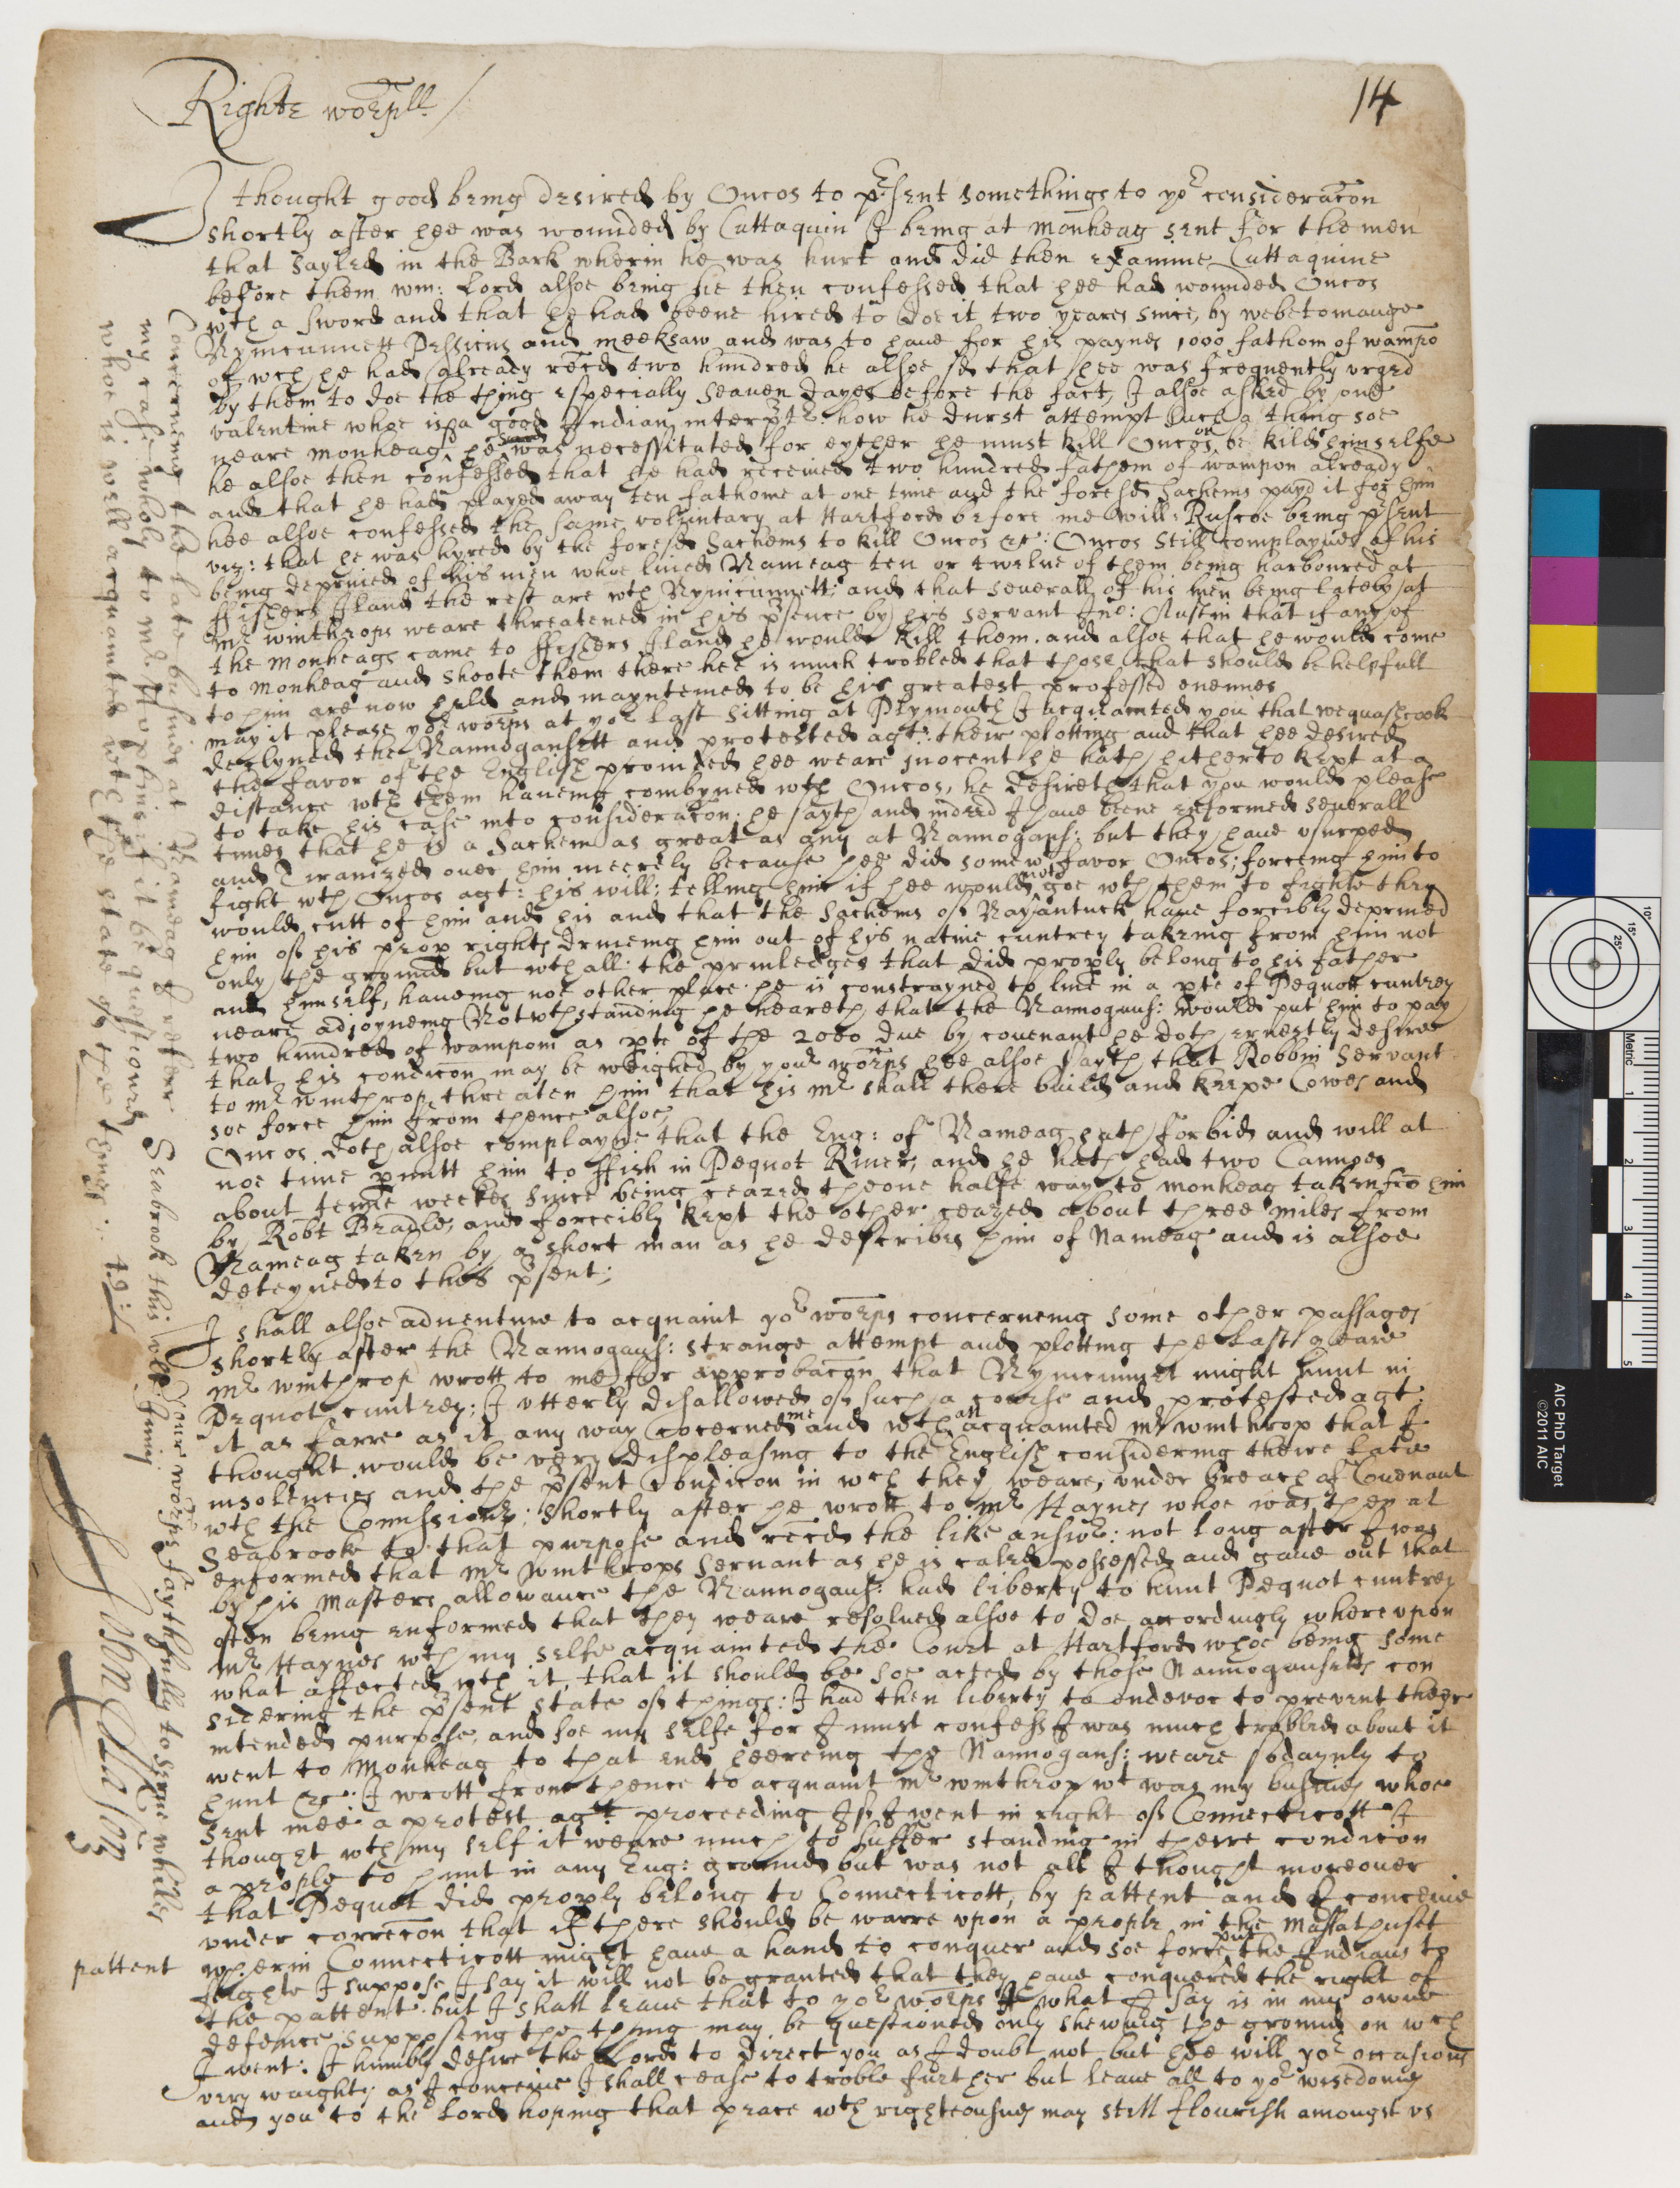 14
Righte worpll
I thought good being desired by Oncos to psent somethings to yor consideracon
shortly after hee was wounded by Cuttaquin I being at Monheag sent for the men
that sayled in the Bark wherin he was hurt and did then examine Cuttaquine
before them wm: Lord alsoe being he then confessed that hee had wounded Oncos
wth a sword and that he had beene hired to doe it two yeares since, by webetomauge
Nymcunnett Pessicus and meeksaw and was to haue for his paynes 1000 fathom of wampo
of wch he had already recd two hundred he alsoe sd that hee was frequently vrged
by them to doe the thing especially seauen dayes before the fact, I alsoe asked by one
valentine whoe is a good Indian interptr how he durst attempt such a thing soe
neare monheag, sd he was necessitated for eyther he must kill Oncos or be kild himselfe
he alsoe then confessed that he had receiued two hundred fathem of wampon already
and that he had played away ten fathome at one time and the foresd Sachems payd it for him
hee alsoe confessed the same voluntary at Hartford before me will: Ruscoe being psent
viz: that he was hyred by the foresd Sachems to kill Oncos &c: Oncos still complayned of his
being depriued of his men whoe liued Nameag ten or twelue of them being harboured at
ffishers Iland the rest are wth Nymcunnett: and that seuerall of his men being lately at
mr winthrops weare threatened in his psence by his servant Jno: Austin that if any of
the monheags came to ffishers Iland he would kill them. and alsoe that he would come
to monheag and shoote them there hee is much trobled that those that should be helpfull
to him are now held and mayntened to be his greatest professed enemies
may it please yor worps at yor last sitting at Plymouth I acquainted you that wequashcook
declyned the Nannogansett and protested agt: their plotting and that hee desired
the favor of the English prouided hee weare inocent he hath hitherto kept at a
distance wth them haueing combyned wth Oncos, he desireth that you would please
to take his case into consideracon: he sayth and indeed I haue beene enformed seuerall
times that he is a Sachem as great as any at Nannogans: but they haue vsurped
and Tiranized ouer him meerely because hee did somew favor Oncos; forceing him to
fight wth Oncos agt: his will: telling him if hee would not goe wth them to fighte they
would cutt of him and his and that the Sachems of Nayantuck haue forcibly depriued
him of his prop right driueing him out of his natiue cuntrey takeing from him not
only the ground but wth all: the priuledges that did proply belong to his father
and himself, haueing noe other place he is constrayned to liue in a pte of Pequott cuntrey
neare adjoyneing Notwthstanding he heareth that the Nannogans: would put him to pay
two hundred of wampom as pte of the 2000 due by couenant he doth ernestly desire
that his condicon may be weighed by your worps hee alsoe sayth that Robbin servant
to mr winthrop threaten him that his mr shall there build and keepe Cowes and
soe force him from thence alsoe,
Oncos doth alsoe complayne that the Eng: of Nameag hath forbid and will at
noe time pmitt him to ffish in Pequot Riuer, and he hath had two Cannoes
about tenne weekes since being ceazed the one halfe way to monheag taken fro him
by Robt Bradle, and forceibly kept the other ceazed about three miles from
Nameag taken by a short man as he describes him of Nameag and is alsoe
deteyned to this psent;
I shall alsoe aduenture to acquaint yor worps concerneing some other passages
shortly after the Nannogans: strange attempt and plotting the last yeare
mr winthrop wrott to me for approbacon that Nymcunnet might hunt in
Pequot cuntrey; I vtterly disallowed of such a course and protested agt:
it as farre as it any way cocerned me and wth all acquainted mr winthrop that I
thought would be very displeasing to the English considering theire late
insolencies and the psent condicon in wch they weare, vnder breach of Couenant
wth the Comissionrs; shortly after he wrott to mr Haynes whoe was then at
Seabrook to that purpose and recd the like answr: not long after I was
enformed that mr winthrops servant as he is caled possessed and gaue out that
by his masters allowance the Nannogans: had liberty to hunt Pequot cuntrey
often being enformed that they weare resolued alsoe to doe accordingly wherevpon
mr Haynes wth my selfe acquainted the Court at Hartford whoe being some
what affected wth it, that it should be soe acted by those Nannogansetts con
sidering the psent state of things: I had then liberty to endevor to prevent theyr
intended purpose, and soe my selfe for I must confess I was much trobled about it
went to Monheag to that end heereing the Nannogans: weare sodaynly to
hunt &c: I wrott from thence to acquaint mr winthrop wt was my busines whoe
sent mee a protest agt proceeding I sd I went in right of Connecticott I
thought wth my self it weare much to suffer standing in theire condicon
a people to hunt in any Eng: ground but was not all I thought moreouer
that Pequot did proply belong to Connecticott, by pattent and I conceiue
vnder correcon that if there should be warre vpon a people in the Massathuset
pattent wherin Connecticott might haue a hand to conquer and soe force put the Indians to
flighte I suppose I say it will not be granted that they haue conquered the right of
the pattent. but I shall leaue that to yor worps what I say is in my owne
defence supposeing the thing may be questioned only shewing the ground on wch
I went: I humbly desire the Lord to direct you as I doubt not but hee will yor occasions
very waighty as I conceiue I shall cease to troble further but leaue all to yor wisedomes
and you to the Lord hoping that peace wth righteousnes may still flourish amongst vs
Concerning the late busines at Nameag I refer
my case wholy to mr Hopkins if it be questioned
whoe is well acquainted wth the state of the thing:
Seabrook this
Your worps faythfully to serue whiles
John Mason